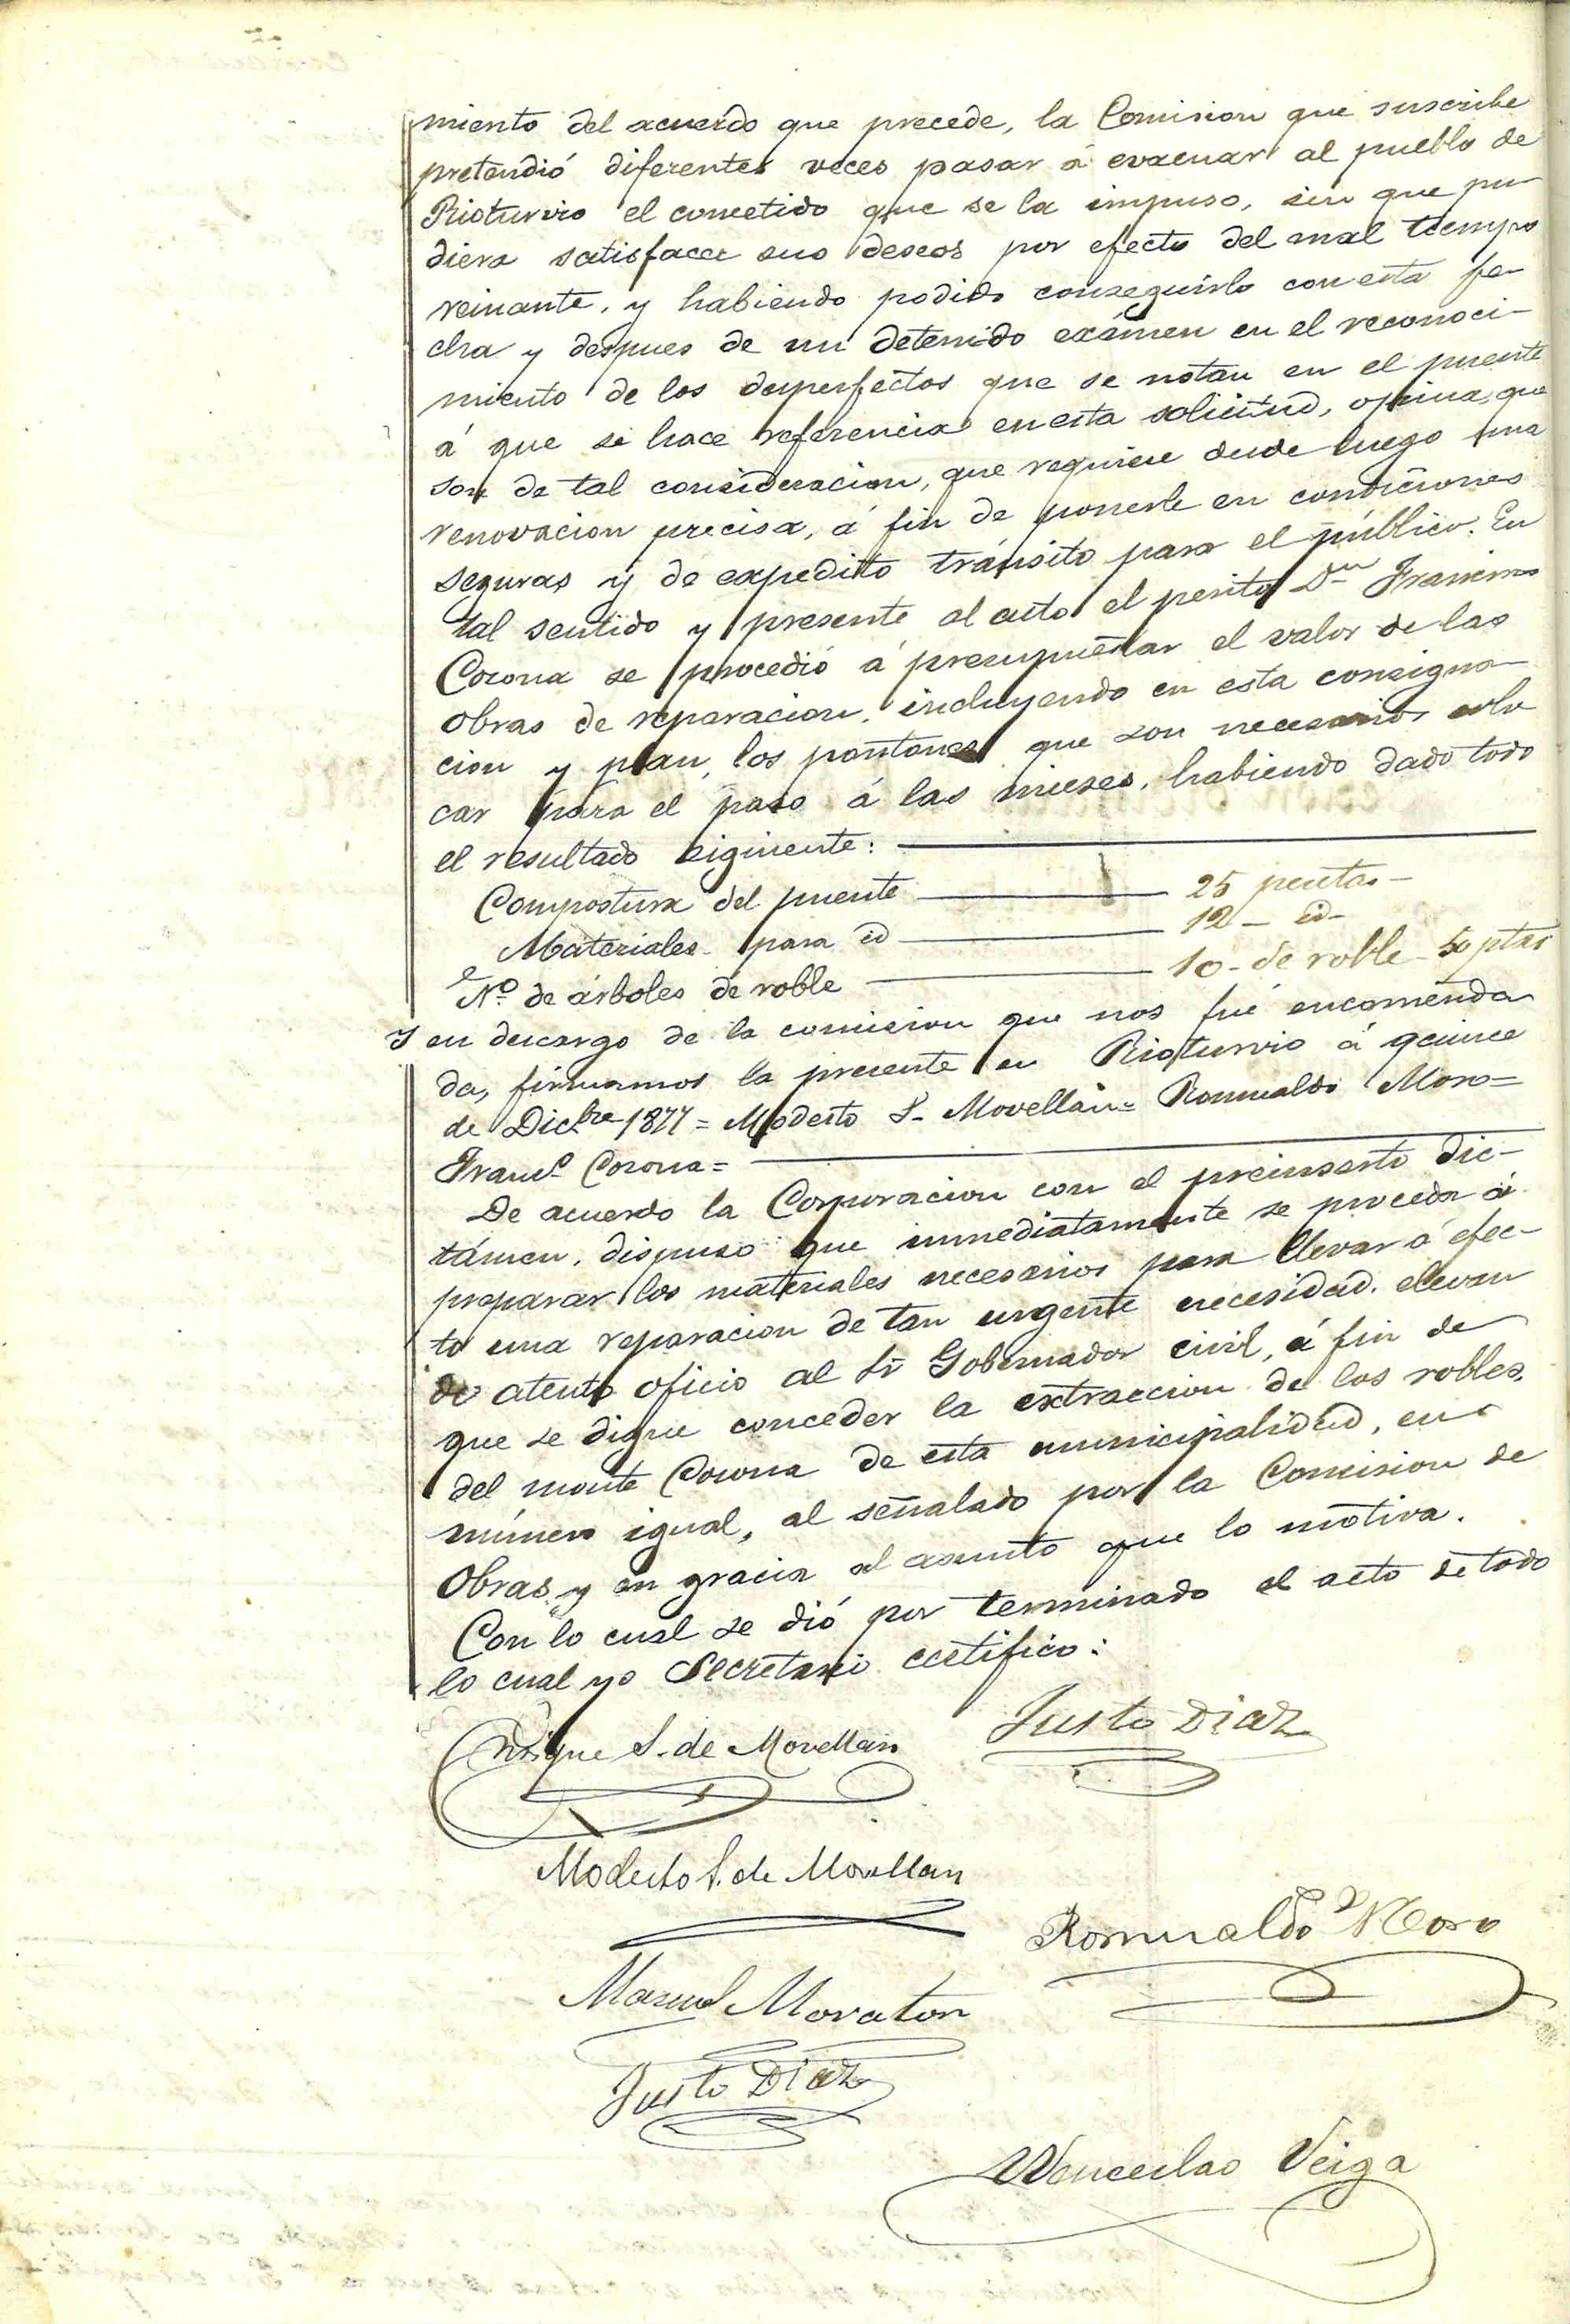 miento del acuerdo que precede, la Comision que suscribe
pretendió diferentes veces pasar á evacuar al pueblo de
Rioturvio el cometido que se la impuso, sin que pu-
diera satisfacer sus deseos por efecto del mal tiempo
reinante, y habiendo podido conseguirlo con esta fe-
cha y despues de un detenido exámen en el reconoci-
miento de los desperfectos que se notan en el puente
á que se hace referencia en esta solicitud, opina, que
son de tal consideracion, que requiere desde luego una
renovacion precisa, á fin de ponerle en condiciones
seguras y de expedito tránsito para el público. En
tal sentido y presente al acto el perito Dn Francisco
Corona se procedió á presupuestar el valor de las
obras de reparacion, incluyendo en esta consigna-
cion y plan, los pontones que son necesarios colo
car para el paso á las mieses, habiendo dado todo
el resultado siguiente:
Compostura del puente 25 pesetas-
Materiales para id 12 - id-
No de árboles de roble 10 - de roble - 50 ptas
Y en descargo de la comision que nos fué encomenda
da, firmamos la presente en Rioturvio á quince
de Dicbre 1877 = Modesto S. Movellán = Romualdo Moro =
Franco Corona =
De acuerdo la Corporacion con el preinserto dic-
támen, dispuso que inmediatamente se proceda á
preparar los materiales necesarios para llevar á efec-
to una reparacion de tan urgente necesidad, elevan
do atento oficio al Sr Gobernador civil, á fin de
que se digne conceder la extraccion de los robles,
del monte Corona de esta municipalidad, en
número igual, al señalado por la Comision de
Obras, y en gracia al asunto que lo motiva.
Con lo cual se dió por terminado el acto de todo
lo cual yo Secretario certifico:
Enrique S. de Movellán Justo Diaz
Modesto S. de Movellan
Romualdo Moro
Manuel Moraton
Justo Diaz
Wenceslao Veiga